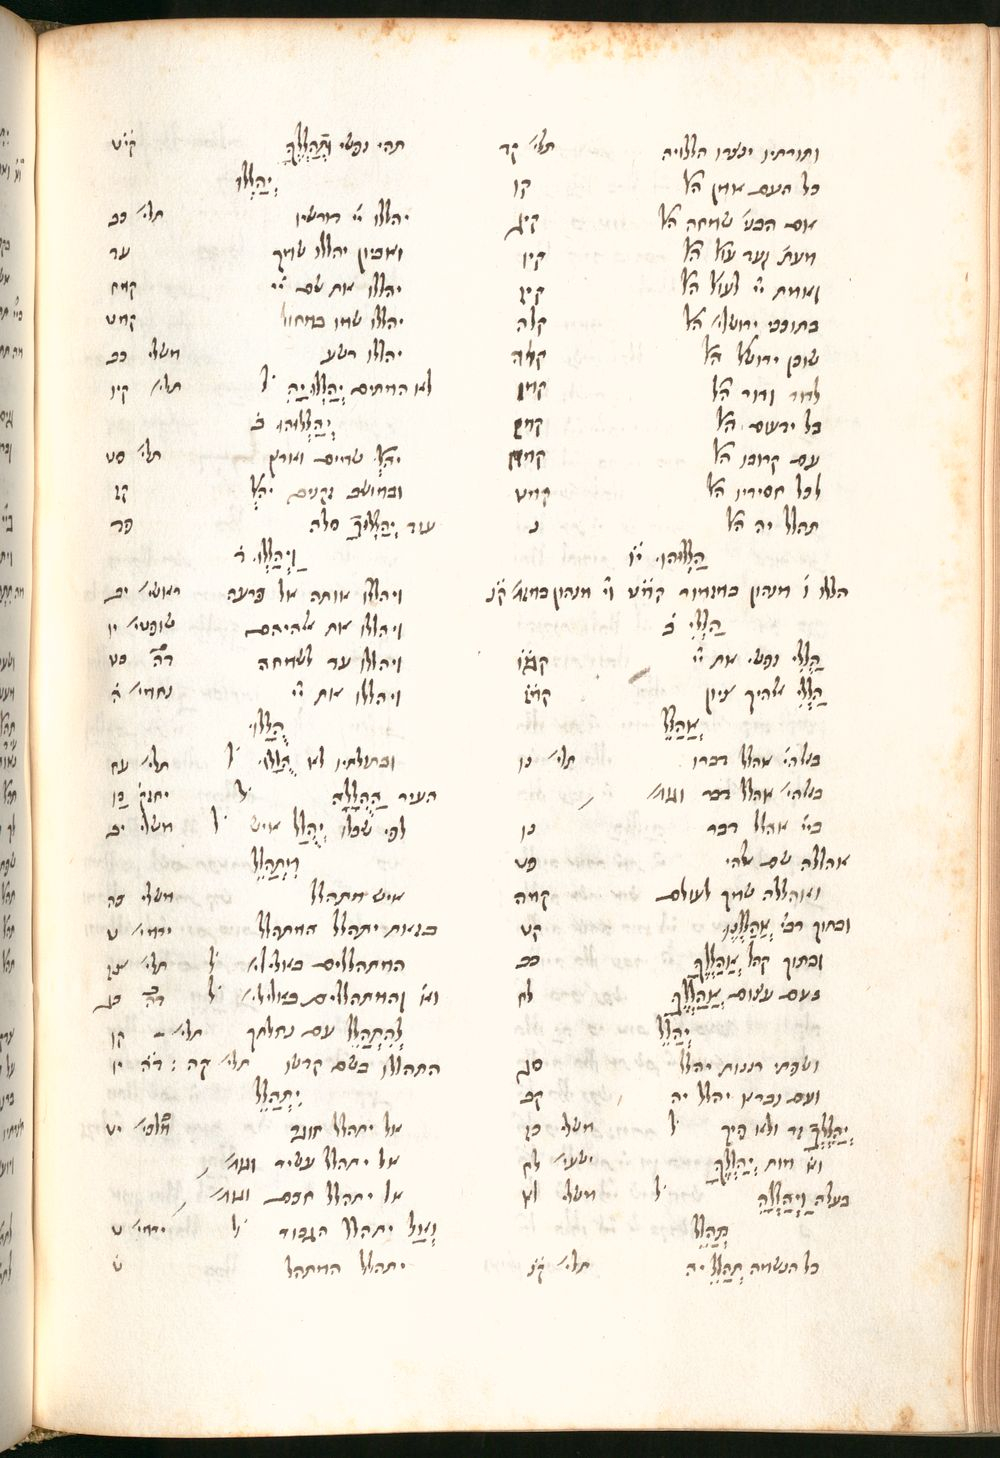 ותורתיו ינצרו הללויה תלי׳ קד
כל העם אמן הל׳ קו
אם הבני׳ שמחה הל׳ קיג
מעת׳ ועד עול׳ הל׳ קיו
ואמת יי׳ לעול׳ הל׳ קיז
בתוככי ירושלי׳ הל׳
שוכן ירושל׳ הל׳ קלה
לדור ודור הל׳ קמו
כל ידעום הל׳ קמז
עם קרובו הל׳ קמח
לכל חסידיו הל׳ קמט
תהלל יה הל׳ נ
הַלְלוּהוּ
הללו מנהון במזמור קמ״ט מנהון במזמ׳ ק״נ
הַלְלִי ב׳
הַלְלִי נפשי את יי׳ קמ״ו
הַלְלִי אלהיך ציון
אֲהַלֵּל
באלהי׳ אהלל דברו תלי׳ נו
באלהי׳ אהלל דבר וגומ׳
ביי׳ אהלל דבר נו
אהללה שם אלהי סט
ואהללה שמך לעולם קמה
ובתוך רבי׳ אֲהַלְלֶנּוּ קט
ובתוך קהל אֲהַלְלֶךָּ כב
בעם עצום אֲהַלְלֶךָּ לה
יְהַלֵּל
ושפתי רננות יהלל סג
ועם נברא יהלל יה קב
יְהַלֶּלְךָ זר ולא פיך ל׳ משלי כז
מות יְהַלְלֶךָּ ישעי׳ לח
בעלה וַיְהַלְלָהּ ל׳ משלי לא
תְּהַלֵּל
כל הנשמה תְּהַלֵּל יה תלי׳ ק״נ
תחי נפשי וּתְהַלְלֶךָּ קי״ט
יְהַלְלוּ
יהללו יי׳ דורשיו תלי׳ כב
ואביון יהללו שמך עד
יהללו את שם יי׳ קמח
יהללו שמו במחול קמט
יהללו רשע משלי כח
לא המתים יְהַלְלוּ יָהּ ל׳ תלי׳ קיו
יְהַלְלוּהוּ ב׳
יהל׳ שמים וארץ תלי׳ סט
ובמושב זקנים יהל׳ קז
עוד יְהַלְלוּךָ סלה פד
וַיְהַלְלוּ ד׳
ויהללו אותה אל פרעה ראשי׳ יב
ויהללו את אלהיהם שופטי׳ יו
ויהללו עד לשמחה דה׳ כט
ויהללו את יי׳ נחמי׳ ה׳
הֻלְּלוּ
ובתולתיו לא הוּלָּלוּ ל׳ תלי׳ עח
העיר הַהֻלָּלָה ל׳ יחזק׳ כו
לפי שכלו יְהֻלַּל איש ל׳ משלי יב
מִתְהַלֵּל
איש מתהלל משלי כה
בזאת יתהלל המתהלל ירמי׳ ט
המתהללים באלילי׳ ל׳ תלי׳ צז
והמתהללים באלילי׳ ל׳
לְהִתְהַלֵּל עם נחלתך תלי׳ קו
התהללו בשם קדשו תלי׳ קה : ד״ה יו
יִתְהַלֵּל
אל יתהלל חוגר מלכי׳
אל יתהלל עשיר וגומ׳
אל יתהלל חכם וגומ׳
וְאַל יתהלל הגבור ל׳ ירמי׳ ט
יתהלל המתהל׳ ט׳